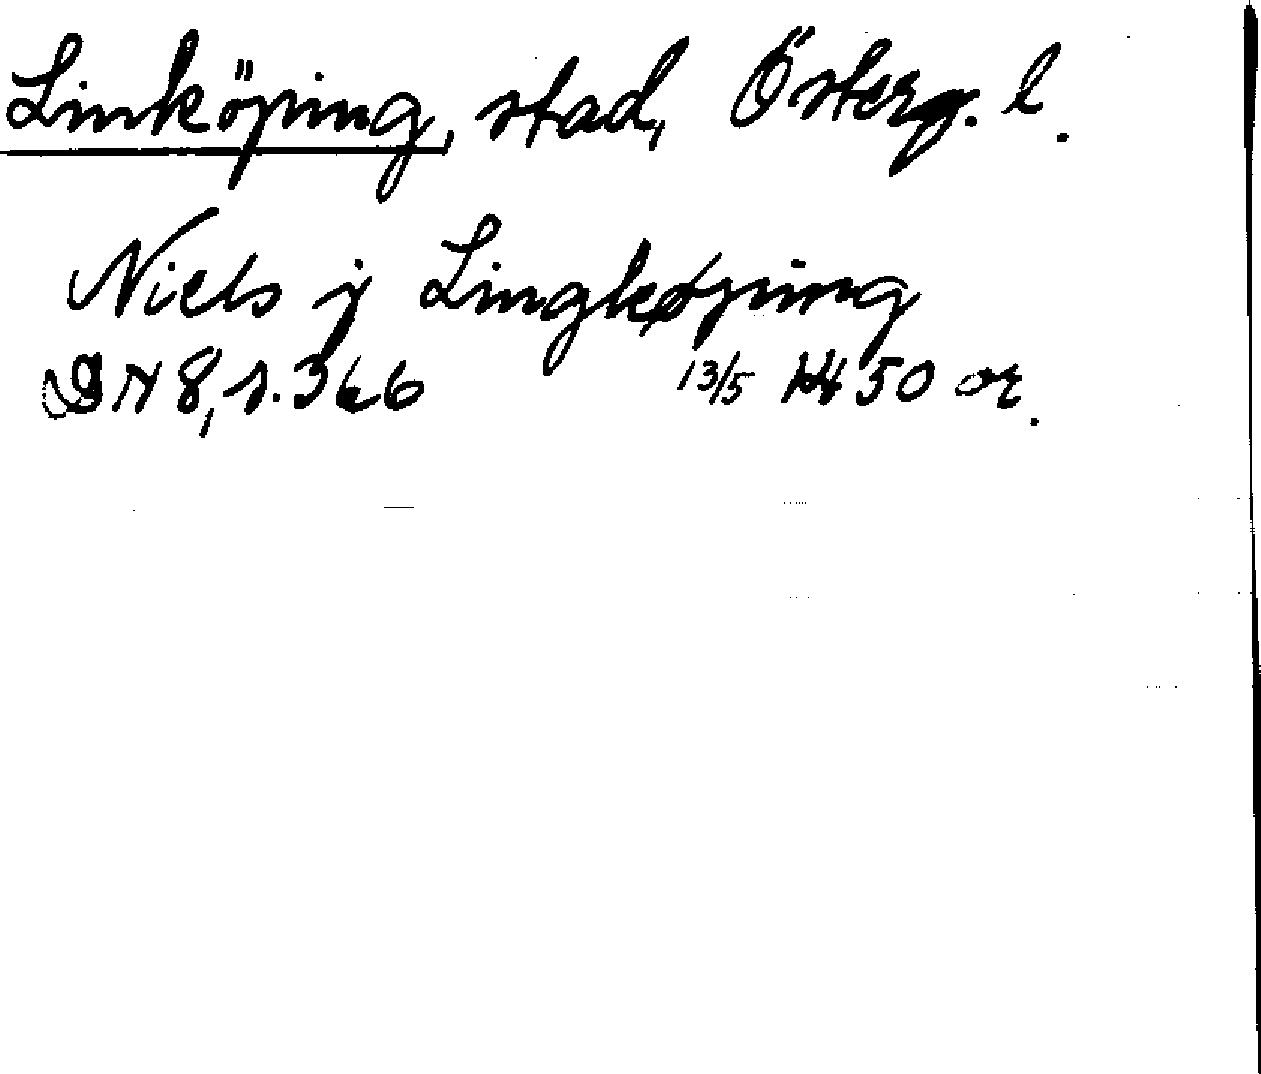 Linköping, stad, Österg. l.
Niels j Lingkøping
DN 8, s. 366 13/5 1450 or.